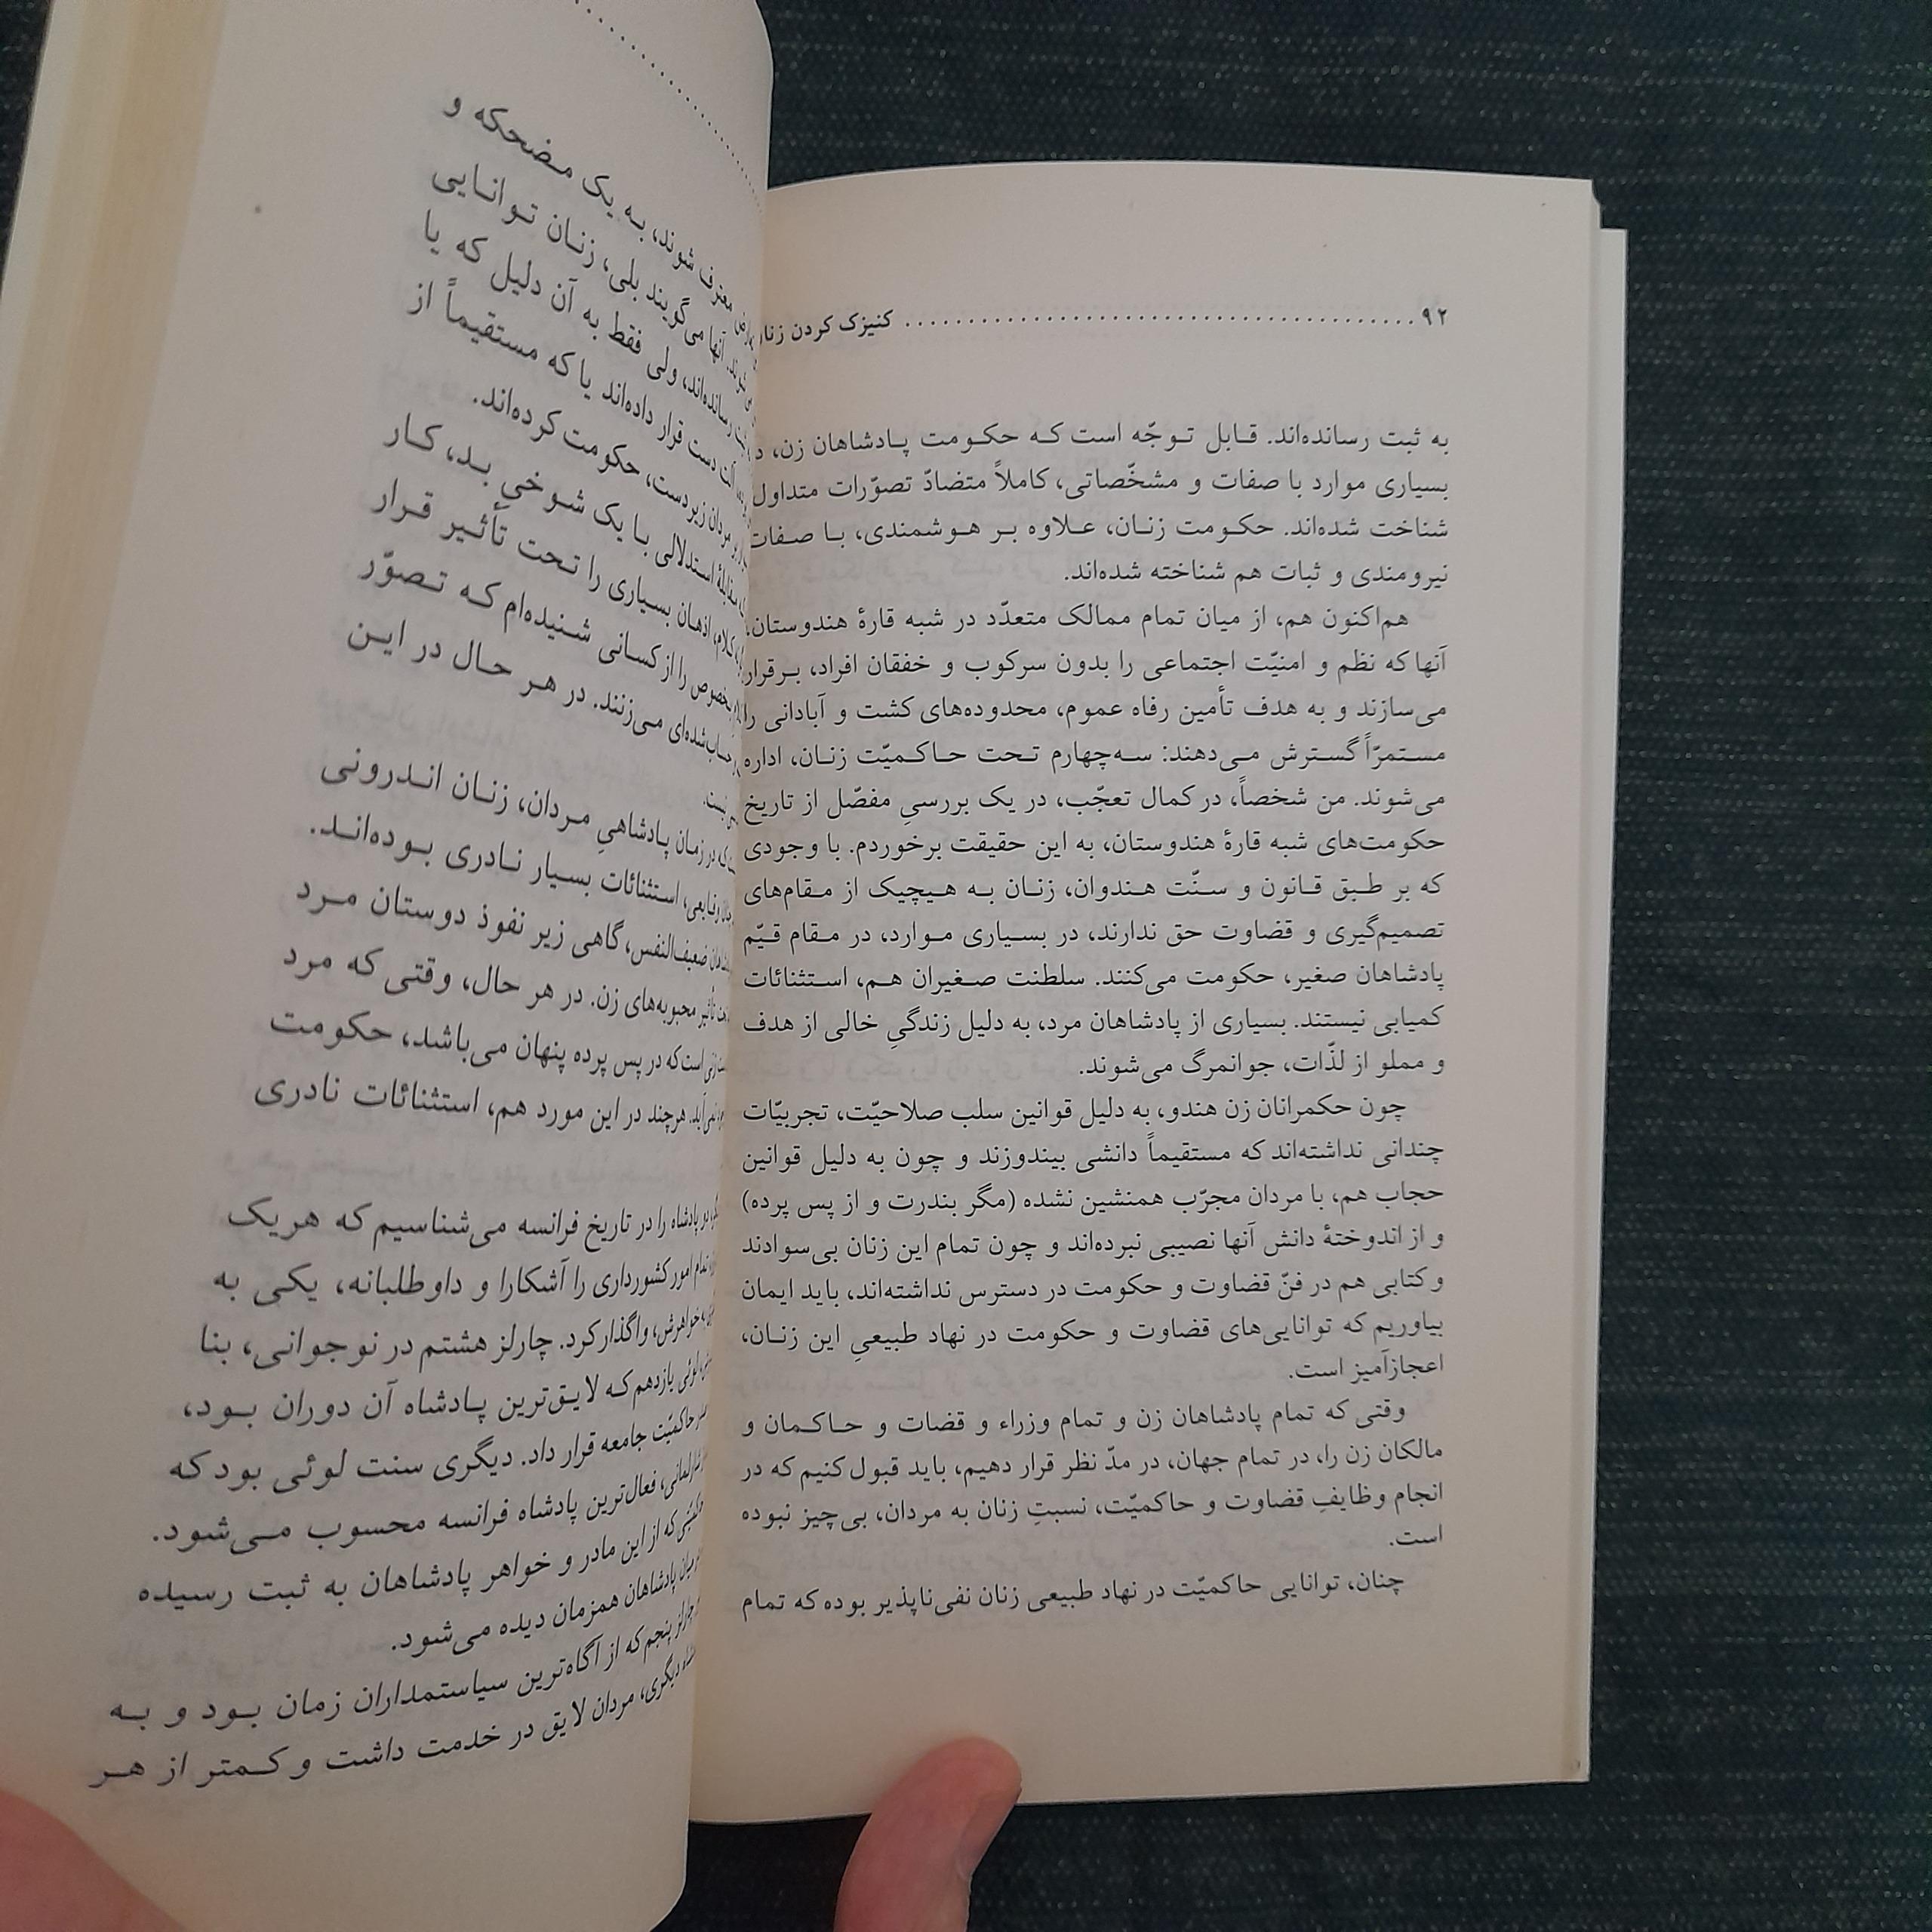 ۹۲ ........................................ کنیزک کردن
به ثبت رسانده‌اند. قابل توجّه است که حکومت پادشاهان زن،
بسیاری موارد با صفات و مشخّصاتی، کاملاً متضادّ تصوّرات متداول
شناخت شده‌اند. حکومت زنان، علاوه بر هوشمندی، با صفات
نیرومندی و ثبات هم شناخته شده‌اند.
هم‌اکنون هم، از میان تمام ممالک متعدّد در شبه قارۀ هندوستان،
آنها که نظم و امنیّت اجتماعی را بدون سرکوب و خفقان افراد، برقرار
می‌سازند و به هدف تأمین رفاه عموم، محدوده‌های کشت و آبادانی را
مستمرّاً گسترش می‌دهند: سه‌چهارم تحت حاکمیّت زنان، اداره
می‌شوند. من شخصاً، در کمال تعجّب، در یک بررسیِ مفصّل از تاریخ
حکومت‌های شبه قارۀ هندوستان، به این حقیقت برخوردم. با وجودی
که بر طبق قانون و سنّت هندوان، زنان به هیچیک از مقام‌های
تصمیم‌گیری و قضاوت حق ندارند، در بسیاری موارد، در مقام قیّم
پادشاهان صغیر، حکومت می‌کنند. سلطنت صغیران هم، استثنائات
کمیابی نیستند. بسیاری از پادشاهان مرد، به دلیل زندگیِ خالی از هدف
و مملو از لذّات، جوانمرگ می‌شوند.
چون حکمرانان زن هندو، به دلیل قوانین سلب صلاحیّت، تجربیّات
چندانی نداشته‌اند که مستقیماً دانشی بیندوزند و چون به دلیل قوانین
حجاب هم، با مردان مجرّب همنشین نشده (مگر بندرت و از پس پرده)
و از اندوختۀ دانش آنها نصیبی نبرده‌اند و چون تمام این زنان بی‌سوادند
و کتابی هم در فنّ قضاوت و حکومت در دسترس نداشته‌اند، باید ایمان
بیاوریم که توانایی‌های قضاوت و حکومت در نهاد طبیعیِ این زنان،
اعجازآمیز است.
وقتی که تمام پادشاهان زن و تمام وزراء و قضات و حاکمان و
مالکان زن را، در تمام جهان، در مدّ نظر قرار دهیم، باید قبول کنیم که در
انجام وظایفِ قضاوت و حاکمیّت، نسبتِ زنان به مردان، بی‌چیز نبوده
است.
چنان، توانایی حاکمیّت در نهاد طبیعی زنان نفی‌ناپذیر بوده که تمام
معترف شوند، به یک مضحکه و
آنها می‌گویند بلی، زنان توانایی
رسانده‌اند، ولی فقط به آن دلیل که یا
دست قرار داده‌اند یا که مستقیماً از
مردان زیردست، حکومت کرده‌اند.
استدلالی با یک شوخیِ بد، کار
کلام، اذهان بسیاری را تحت تأثیر قرار
بخصوص را از کسانی شنیده‌ام که تصوّر
می‌زنند. در هر حال در این
نیست.
که در زمان پادشاهیِ مردان، زنان اندرونی
استثنائات بسیار نادری بوده‌اند.
ضعیف‌النفس، گاهی زیر نفوذ دوستان مرد
تأثیر محبوبه‌های زن. در هر حال، وقتی که مرد
است که در پس پرده پنهان می‌باشد، حکومت
هرچند در این مورد هم، استثنائات نادری
دو پادشاه را در تاریخ فرانسه می‌شناسیم که هریک
تمام امور کشورداری را آشکارا و داوطلبانه، یکی به
خواهرش، واگذار کرد. چارلز هشتم در نوجوانی، بنا
لوئی یازدهم که لایق‌ترین پادشاه آن دوران بود،
حاکمیّت جامعه قرار داد. دیگری سنت لوئی بود که
فعال‌ترین پادشاه فرانسه محسوب می‌شود.
که از این مادر و خواهر پادشاهان به ثبت رسیده
میان پادشاهان همزمان دیده می‌شود.
چارلز پنجم که از آگاه‌ترین سیاستمداران زمان بود و به
دیگری، مردان لایق در خدمت داشت و کمتر از هر